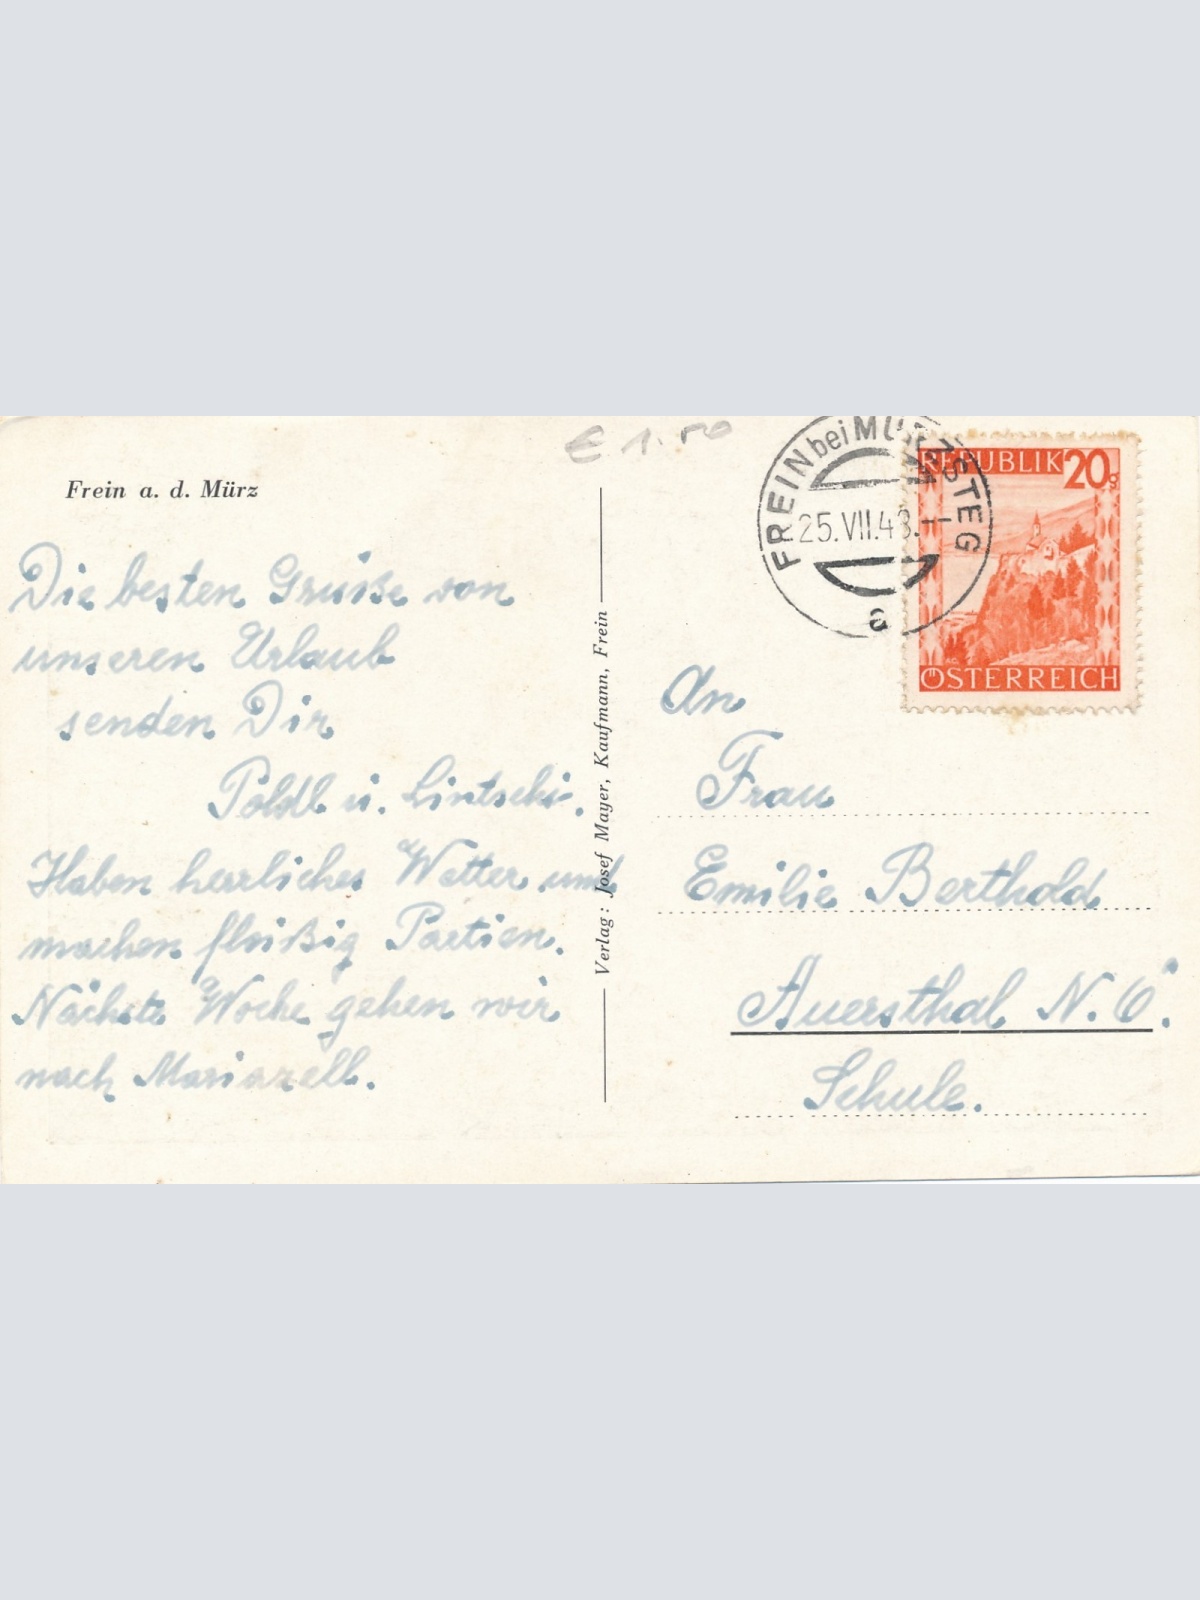 € 1.50
Frein a. d. Mürz
Die besten Grüße von
unseren Urlaub
senden Dir
Poldl u. Lintschi.
Haben herrliches Wetter und
machen fleißig Partien.
Nächste Woche gehen wir
nach Mariazell.
Verlag: Josef Mayer, Kaufmann, Frein
FREIN bei MÜRZSTEG
25.VII.48.
a
REPUBLIK 20g
ÖSTERREICH
An
Frau
Emilie Berthold
Auersthal N.Ö.
Schule.